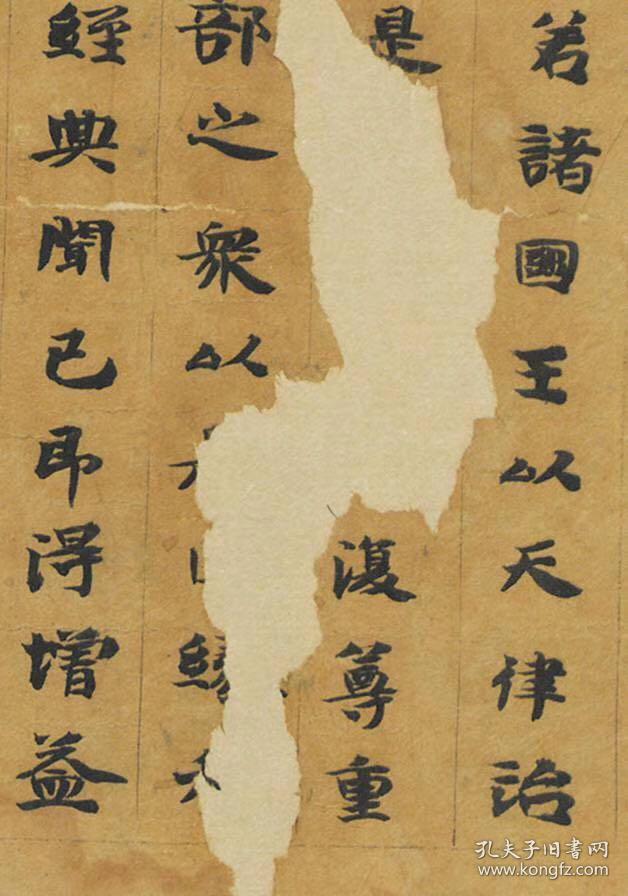 若諸國王以天律治
是復尊重
部之衆以是因緣
經典聞已即得增益
孔夫子旧书网
www.kongfz.com